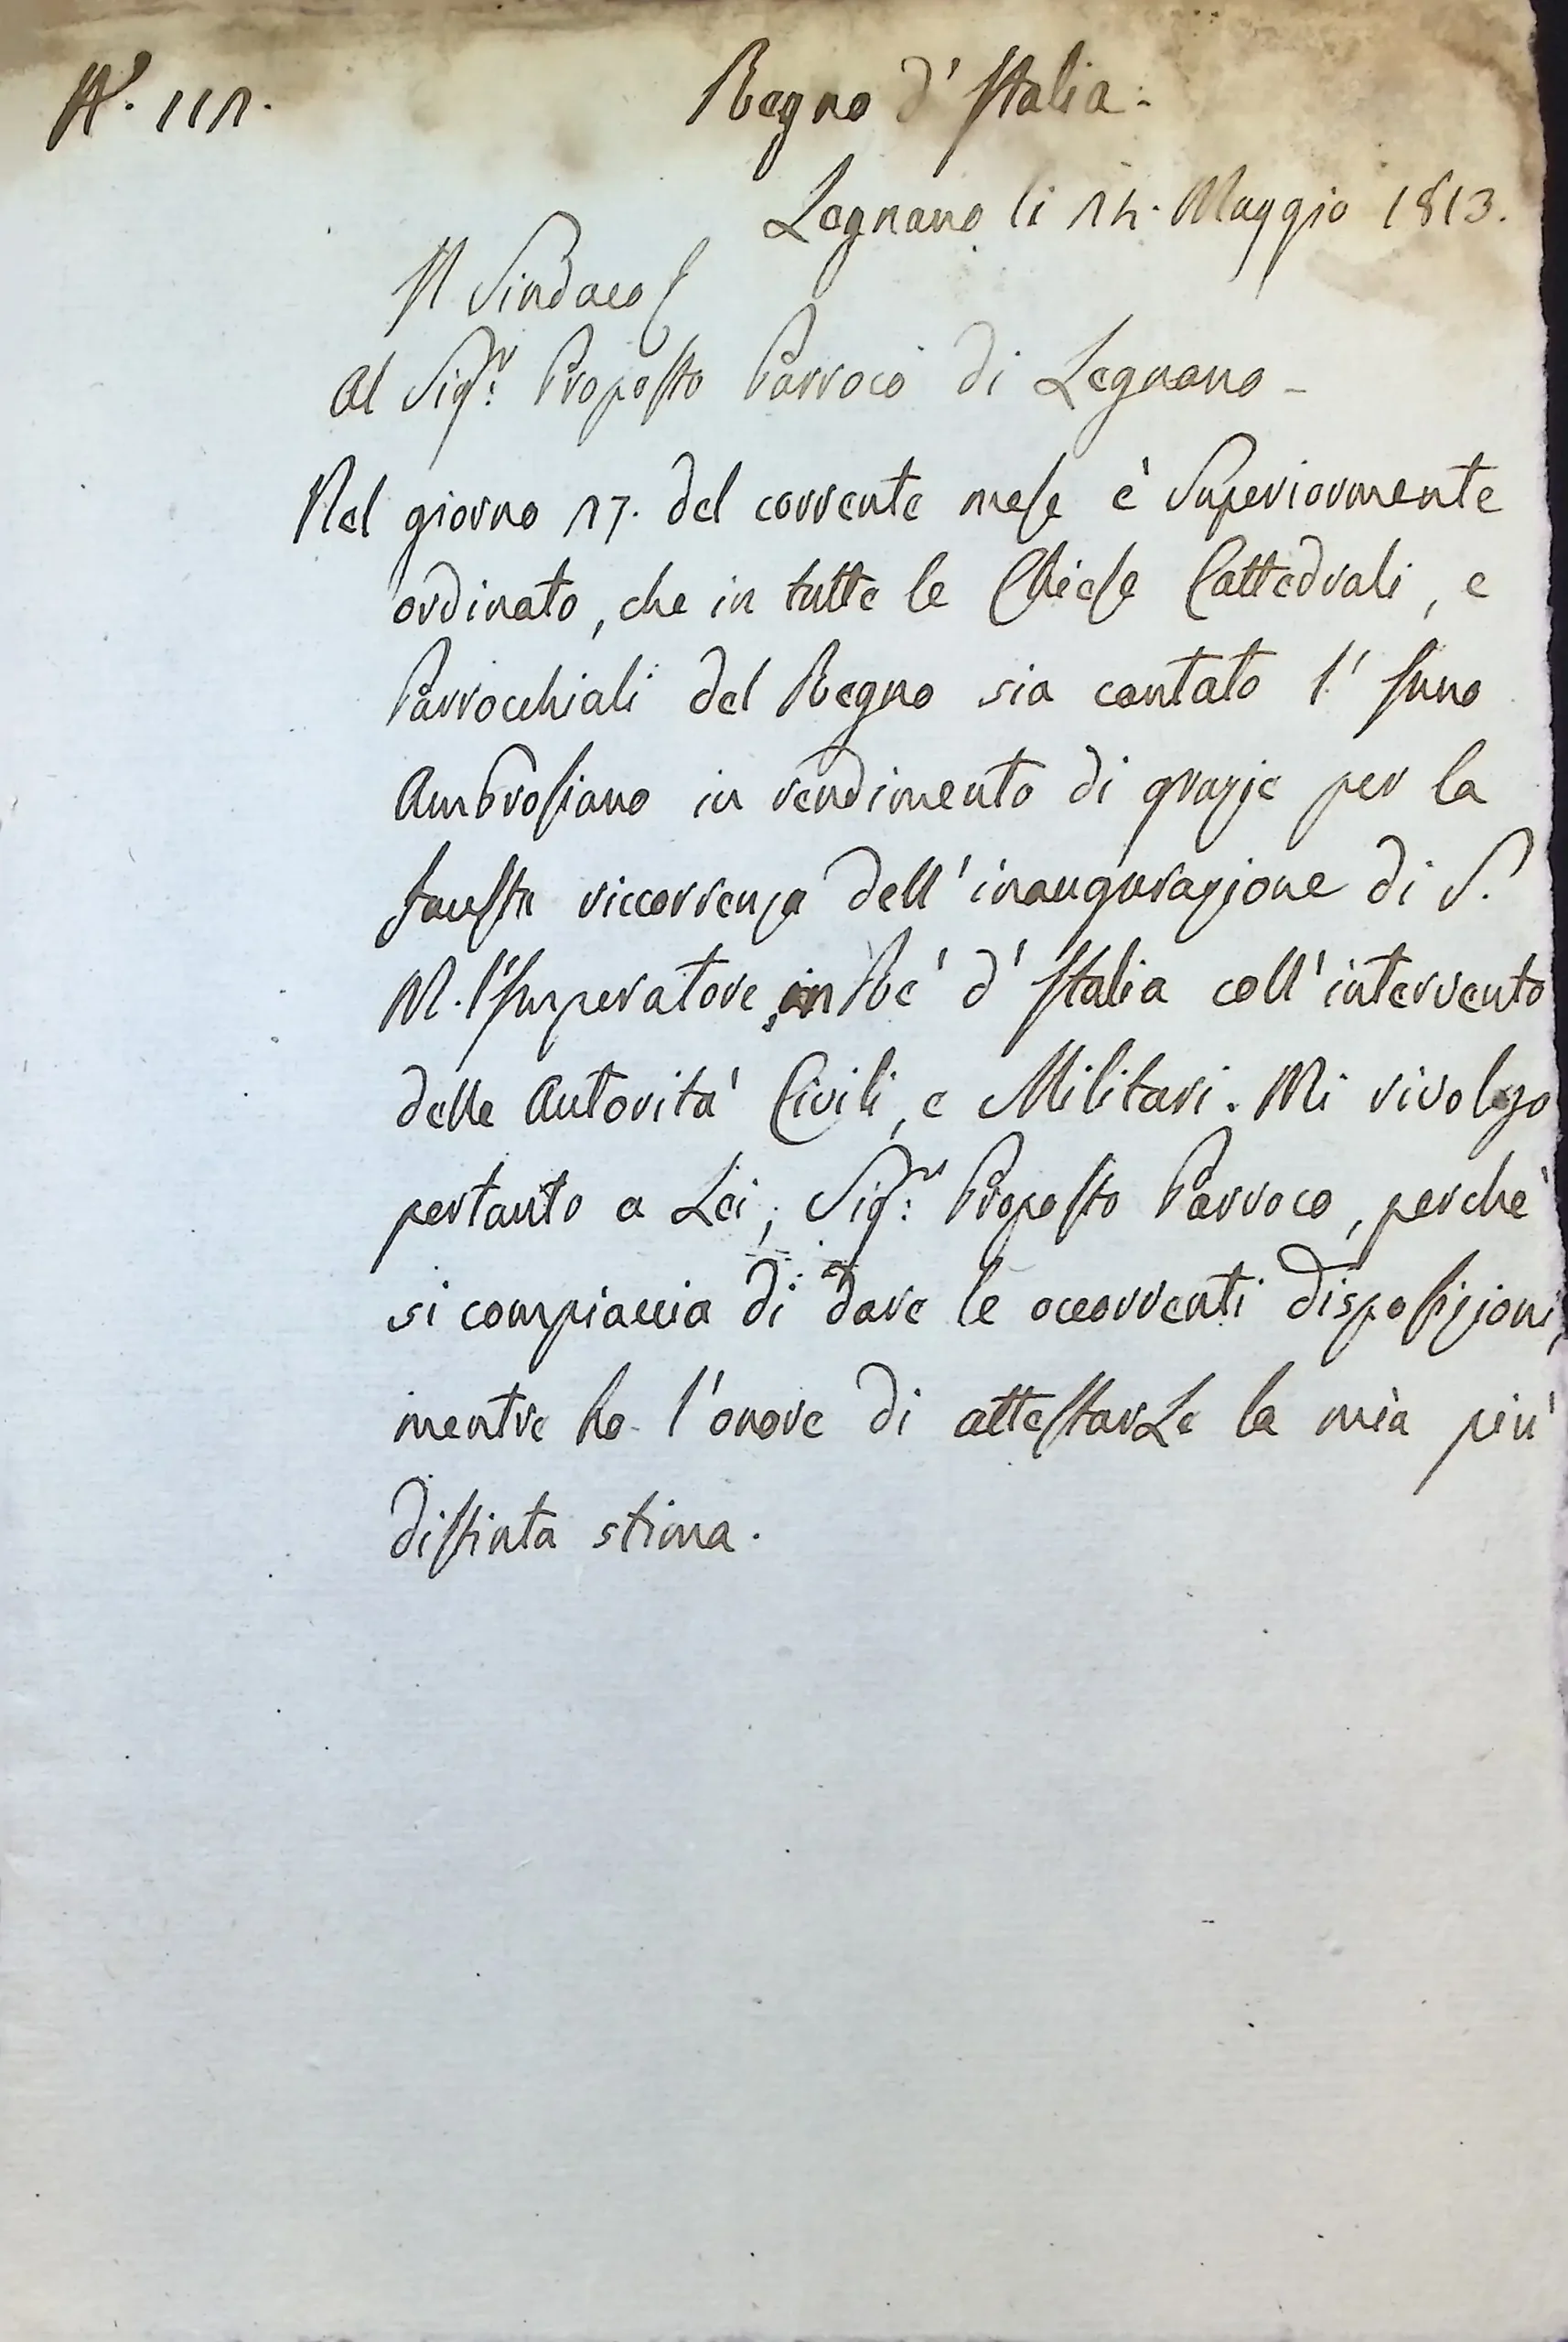 N.° 111.
Regno d'Italia.
Legnano li 14. Maggio 1813.
Il Sindaco
Al Sigr. Proposto Parroco di Legnano -
Nel giorno 17. del corrente mese è Superiormente
ordinato, che in tutte le Chiese Cattedrali, e
Parrocchiali del Regno sia cantato l'Inno
Ambrosiano in rendimento di grazie per la
fausta riccorrenza dell'inaugurazione di S.
M. l'Imperatore, in Rè d'Italia coll'intervento
delle Autorità Civili, e Militari. Mi rivolgo
pertanto a Lei, Sigr. Proposto Parroco, perchè
si compiaccia di dare le occorrenti disposizioni,
mentre ho l'onore di attestarLe la mia più
distinta stima.